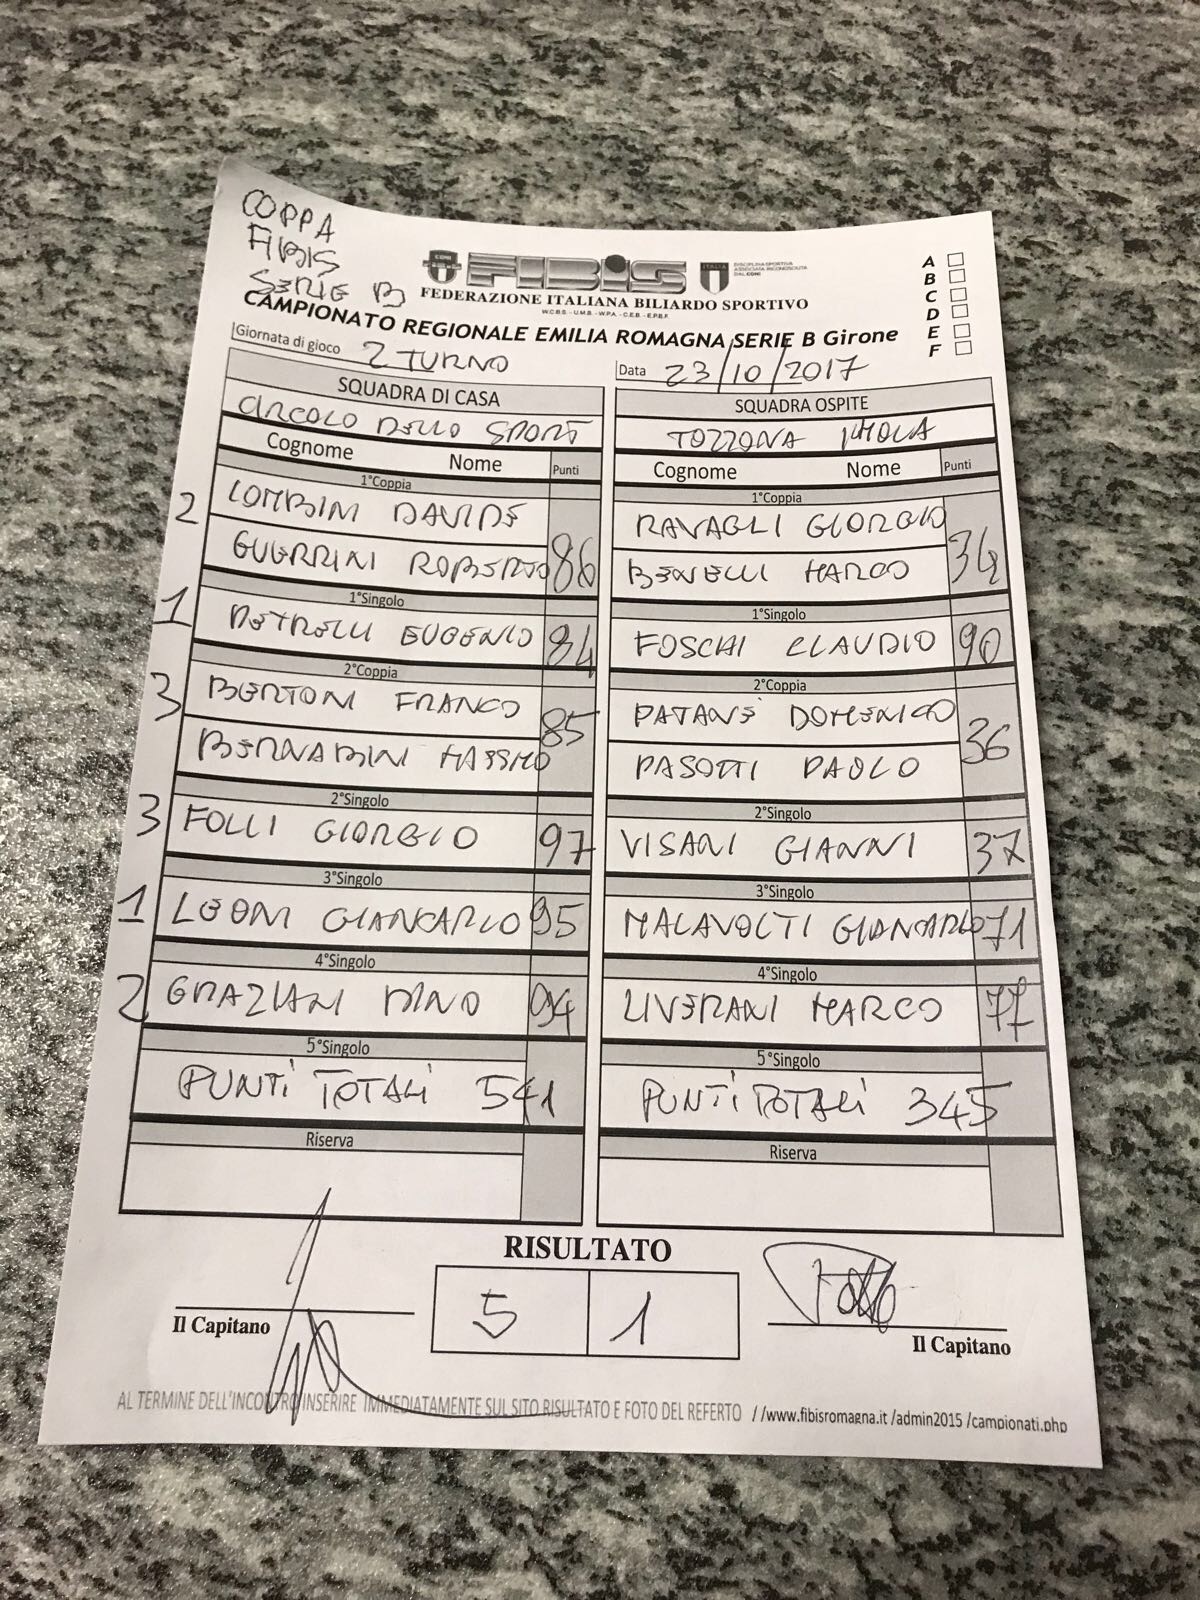 COPPA
FIBIS
SERIE B
FIBIS
ITALIA
DISCIPLINA SPORTIVA
ASSOCIATA RICONOSCIUTA
DAL CONI
FEDERAZIONE ITALIANA BILIARDO SPORTIVO
W.C.B.S. - U.M.B. - W.P.A. - C.E.B. - E.P.B.F.
CAMPIONATO REGIONALE EMILIA ROMAGNA SERIE B Girone
A
B
C
D
E
F
Giornata di gioco 2 TURNO
Data 23/10/2017
SQUADRA DI CASA
CIRCOLO DELLO SPORT
Cognome Nome Punti
1°Coppia
2 LOMBINI DAVIDE
GUERRINI ROBERTO 86
1°Singolo
1 PETRELLI EUGENIO 84
2°Coppia
3 BERTONI FRANCO
BERNABINI MASSIMO 85
2°Singolo
3 FOLLI GIORGIO 97
3°Singolo
1 LEONI GIANCARLO 95
4°Singolo
2 GRAZIANI DINO 94
5°Singolo
PUNTI TOTALI 541
Riserva
SQUADRA OSPITE
TOZZONA IMOLA
Cognome Nome Punti
1°Coppia
RAVAGLI GIORGIO
BENELLI MARCO 34
1°Singolo
FOSCHI CLAUDIO 90
2°Coppia
PATANÈ DOMENICO
PASOTTI PAOLO 36
2°Singolo
VISANI GIANNI 37
3°Singolo
MALAVOLTI GIANCARLO 71
4°Singolo
LIVERANI MARCO 77
5°Singolo
PUNTI TOTALI 345
Riserva
RISULTATO
5 1
Il Capitano
Il Capitano
AL TERMINE DELL'INCONTRO INSERIRE IMMEDIATAMENTE SUL SITO RISULTATO E FOTO DEL REFERTO //www.fibisromagna.it /admin2015 /campionati.php